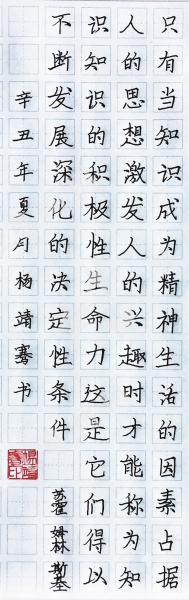 只有当知识成为精神生活的因素占据
人的思想激发人的兴趣时才能称为知
识知识的积极性生命力这是它们得以
不断发展深化的决定性条件 苏霍姆林斯基
辛丑年夏月杨靖骞书